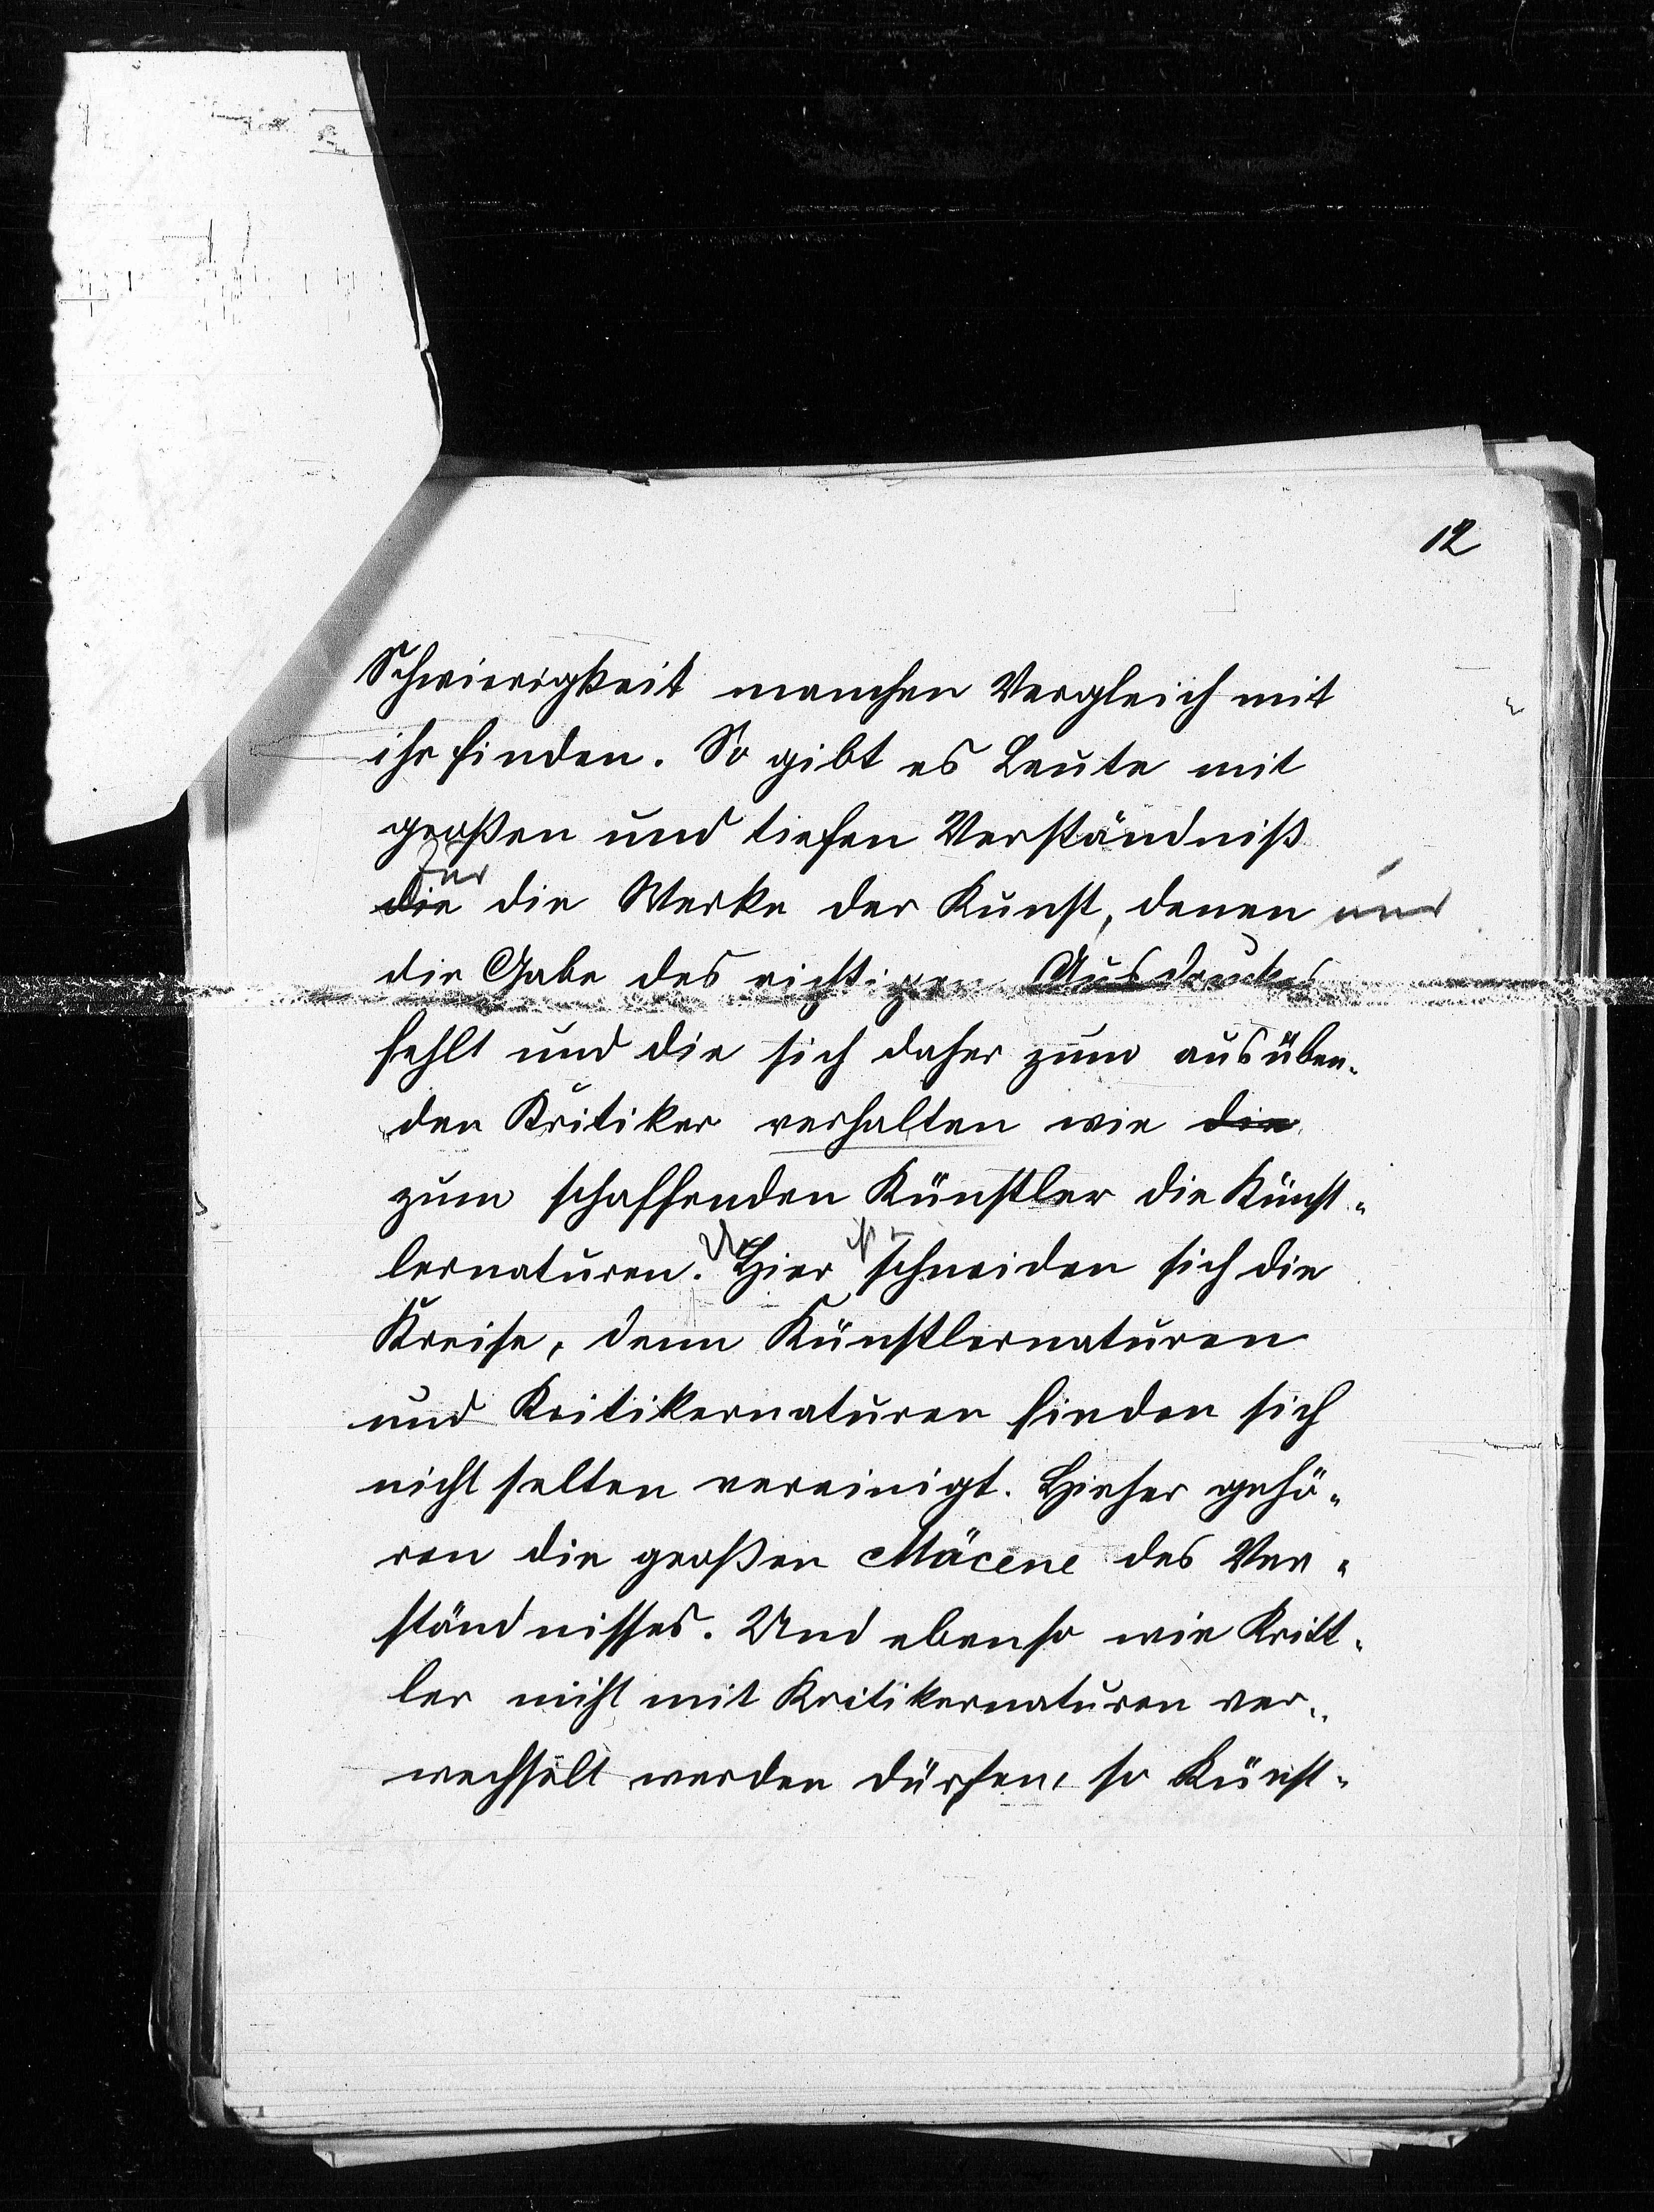 12
Schwierigkeit manchen Vergleich mit
ihr finden. So gibt es Leute mit
großen und tiefen Verständniß
für
die die Werke der Kunst, denen nur
die Gabe des richtigen Ausdruckes
fehlt und die sich daher zum ausüben-
den Kritiker verhalten wie die
zum schaffenden Künstler die Künst-
lernaturen. Hier schneiden sich die
Kreise, denn Künstlernaturen
und Kritikernaturen finden sich
nicht selten vereinigt. Hieher gehö-
ren die großen Mäcene des Ver-
ständnisses. Und ebenso wie Kritt-
ler nicht mit Kritikernaturen ver-
wechselt werden dürfen, so Künst-